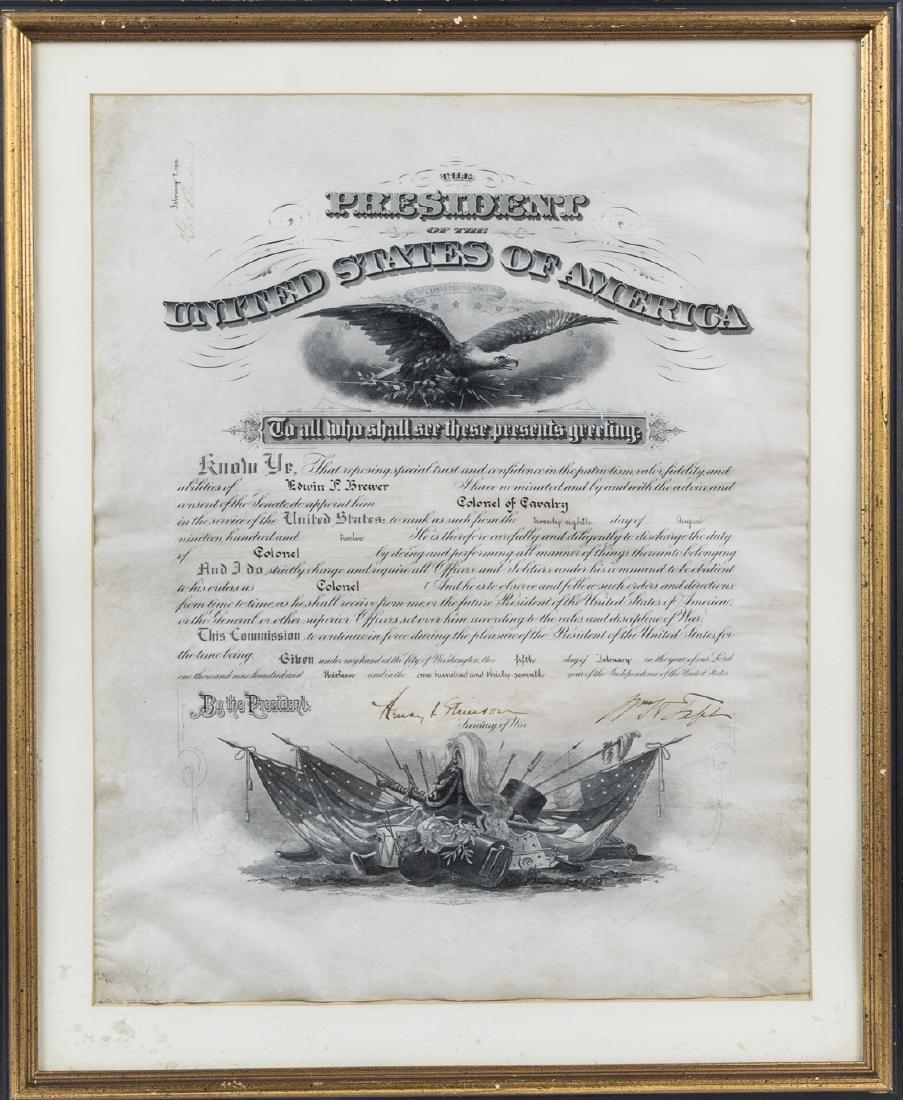 February 7, 1913.
THE
PRESIDENT
OF THE
UNITED STATES OF AMERICA
To all who shall see these presents greeting:
Know Ye, That reposing special trust and confidence in the patriotism, valor, fidelity, and
abilities of Edwin P. Brewer I have nominated and by and with the advice and
consent of the Senate, do appoint him Colonel of Cavalry
in the service of the United States: to rank as such from the twenty-eighth day of August
nineteen hundred and twelve He is therefore carefully and diligently to discharge the duty
of Colonel by doing and performing all manner of things thereunto belonging
And I do strictly charge and require all Officers and Soldiers under his command to be obedient
to his orders as Colonel And he is to observe and follow such orders and directions
from time to time, as he shall receive from me, or the future President of the United States of America,
or the General or other superior Officers set over him, according to the rules and discipline of War.
This Commission to continue in force during the pleasure of the President of the United States for
the time being. Given under my hand at the City of Washington, this fifth day of February in the year of our Lord
one thousand nine hundred and thirteen and in the one hundred and thirty-seventh year of the Independence of the United States
By the President:
Henry L. Stimson
Wm H Taft
Secretary of War.